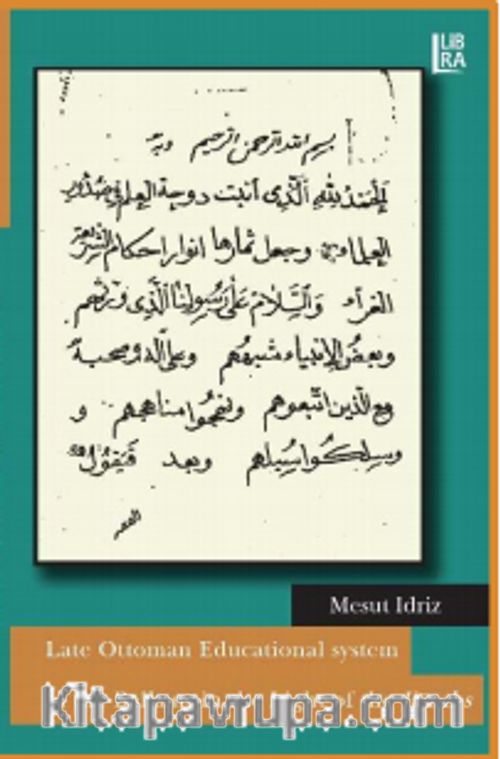 LiB
RA
بسم الله الرحمن الرحيم وبه
الحمد لله الذي انبت دوحة العلم في صدور
العلماء وجعل ثمارها انوار احكام الشريعة
الغراء والسلام على رسولنا الذي ورثهم
وبعض الانبياء شبههم وعلى آله وصحبه
مع الذين اتبعوهم ونهجوا مناهجهم و
وسلكوا سبيلهم وبعد فيقول
Mesut Idriz
Late Ottoman Educational system
Kitapavrupa.com